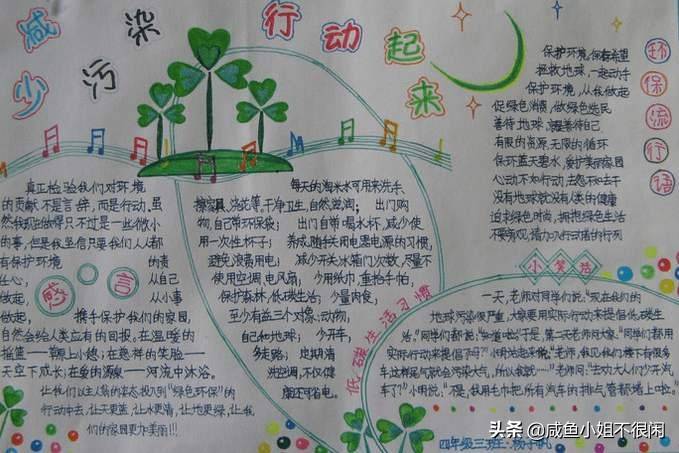 减少污染
行动起来
真正检验我们对环境
的贡献不是言辞,而是行动,虽
然我现在做得只不过是一些微小
的事,但是我坚信只要我们人人都
有保护环境的责
任心,从自己
做起,从小事
做起,携手保护我们的家园,
自然会给人类应有的回报。在温暖的
摇篮——草原上小憩;在慈祥的笑脸——
天空下成长;在爱的源泉——河流中沐浴。
让我们以主人翁的姿态投入到“绿色环保”的
行动中去,让天更蓝,让水更清,让地更绿,让我
们的家园更加美丽!!!
感言
每天的淘米水可用来洗手、
擦家具、浇花等。干净卫生,自然滋润;出门购
物,自己带环保袋;出门自带喝水杯,减少使
用一次性杯子;养成随手关用电器电源的习惯,
避免浪费用电;减少开关冰箱门次数,尽量不
使用空调、电风扇;少用纸巾,重拾手帕,
保护森林,低碳生活;少量肉食,
至少有益三个对象:动物,
自己和地球;少开车,
多走路;定期清
洗空调,不仅健
康还可省电。
低碳生活习惯
环保流行语
保护环境,保存希望
拯救地球,一起动手
保护环境,从我做起
促绿色消费,做绿色选民
善待地球,就是善待自己
有限的资源,无限的循环
保环蓝天碧水,爱护美的家园
心动不如行动,去怨不如去干
没有地球就没有人类的健康
迫求绿色时尚,拥抱绿色生活
不要旁观,请加入行动者的行列
小笑话
一天,老师对同学们说:“现在我们的
地球污染很严重,大家要用实际行动来提倡低碳生
活。”同学们都说:“知道啦!”于是,第二天老师问大家:“同学们都用
实际行动来提倡了吗?”小明站起来说:“老师,我见我们楼下有很多
车,这样尾气就会污染大气,所以我就……”老师问:“去功大人们少开汽
车了?”小明说:“不是,我用毛巾把所有汽车的排气管都堵上啦。”
四年级三班:杨子帆
头条 @咸鱼小姐不很闲